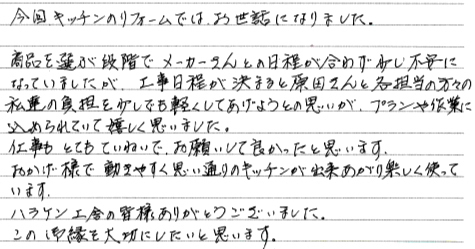 今回キッチンのリフォームでは、お世話になりました。
商品を選ぶ段階でメーカーさんとの日程が合わず少し不安に
なっていましたが、工事日程が決まると原田さんと各担当の方々の
私達の負担を少しでも軽くしてあげようとの思いが、プランや作業に
込められていて嬉しく思いました。
仕事もとてもていねいで、お願いして良かったと思います。
おかげ様で動きやすく思い通りのキッチンが出来あがり楽しく使って
います。
ハラケン工舎の皆様ありがとうございました。
このご縁を大切にしたいと思います。